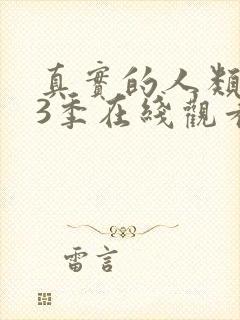 真實的人類
3季在綫觀看
雷言